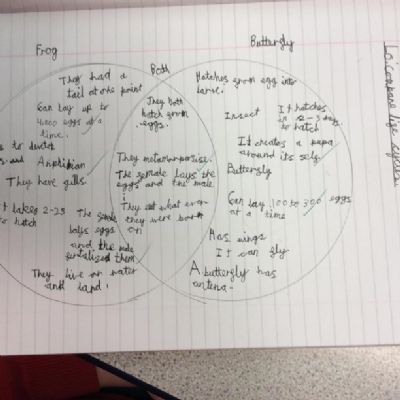 Lo: compare life cycles
Frog
Both
Butterfly
They had a
tail at one point
Can lay up to
4000 eggs at a
time.
Amphibian
They have gills.
t takes 2-25
to hatch
The female
lays eggs
and the male
fertalised them
They live on water
and land.
They both
hatch from
eggs.
They metamorphosise.
The female lays the
eggs and the male
They eat what ever
they were born
on
Hatches from egg into
larve.
Insect
It hatches
in 2-3 days
to hatch
It creates a pupa
around its self
Butterfly
Can lay 100 to 300 eggs
at a time
Has wings
It can fly
A butterfly has
antena.